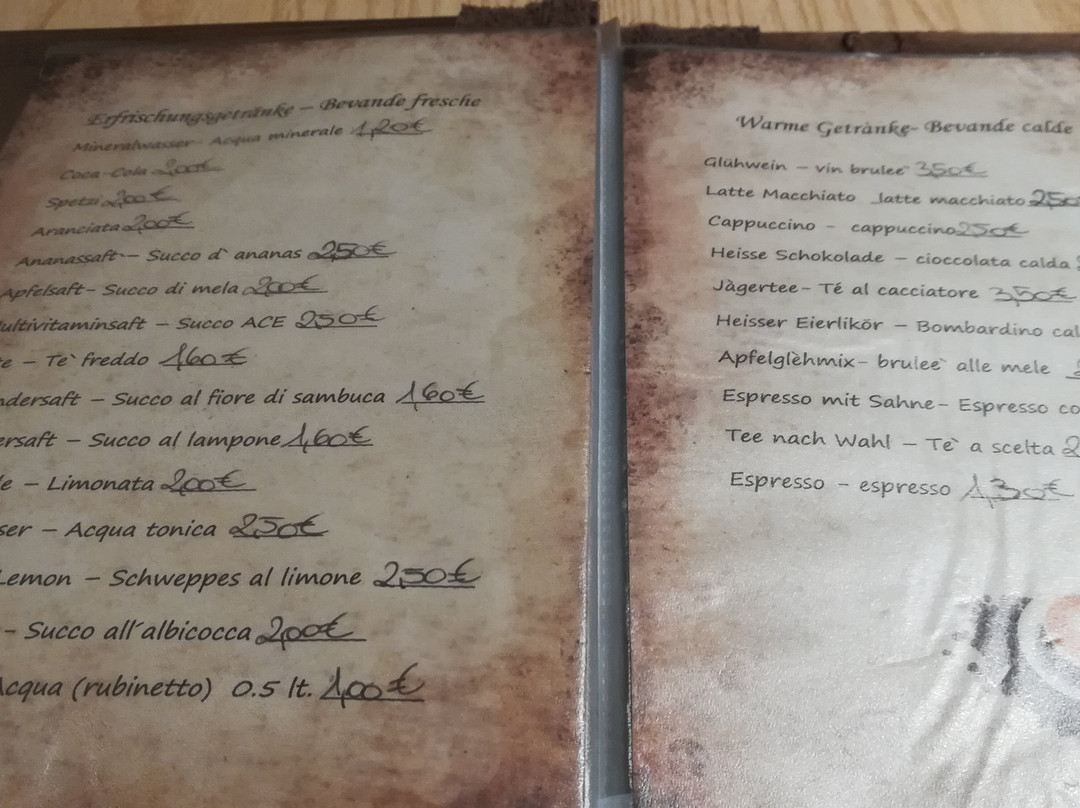 Erfrischungsgetränke – Bevande fresche
Mineralwasser- Acqua minerale 1,20€
Coca-Cola 2,00€
Spetzi 2,00€
Aranciata 2,00€
Ananassaft – Succo d` ananas 2,50€
Apfelsaft- Succo di mela 2,00€
ultivitaminsaft – Succo ACE 2,50€
e – Te` freddo 1,60€
ndersaft – Succo al fiore di sambuca 1,60€
ersaft – Succo al lampone 1,60€
e – Limonata 2,00€
ser – Acqua tonica 2,50€
Lemon – Schweppes al limone 2,50€
– Succo all´albicocca 2,00€
Acqua (rubinetto) 0.5 lt. 1,00€
Warme Getränke- Bevande calde
Glühwein – vin brulee` 3,50€
Latte Macchiato _latte macchiato 2,50
Cappuccino – cappuccino 2,50€
Heisse Schokolade – cioccolata calda
Jàgertee- Té al cacciatore 3,50€
Heisser Eierlikör – Bombardino cal
Apfelglèhmix- brulee` alle mele
Espresso mit Sahne- Espresso co
Tee nach Wahl – Te` a scelta 2
Espresso – espresso 1,30€